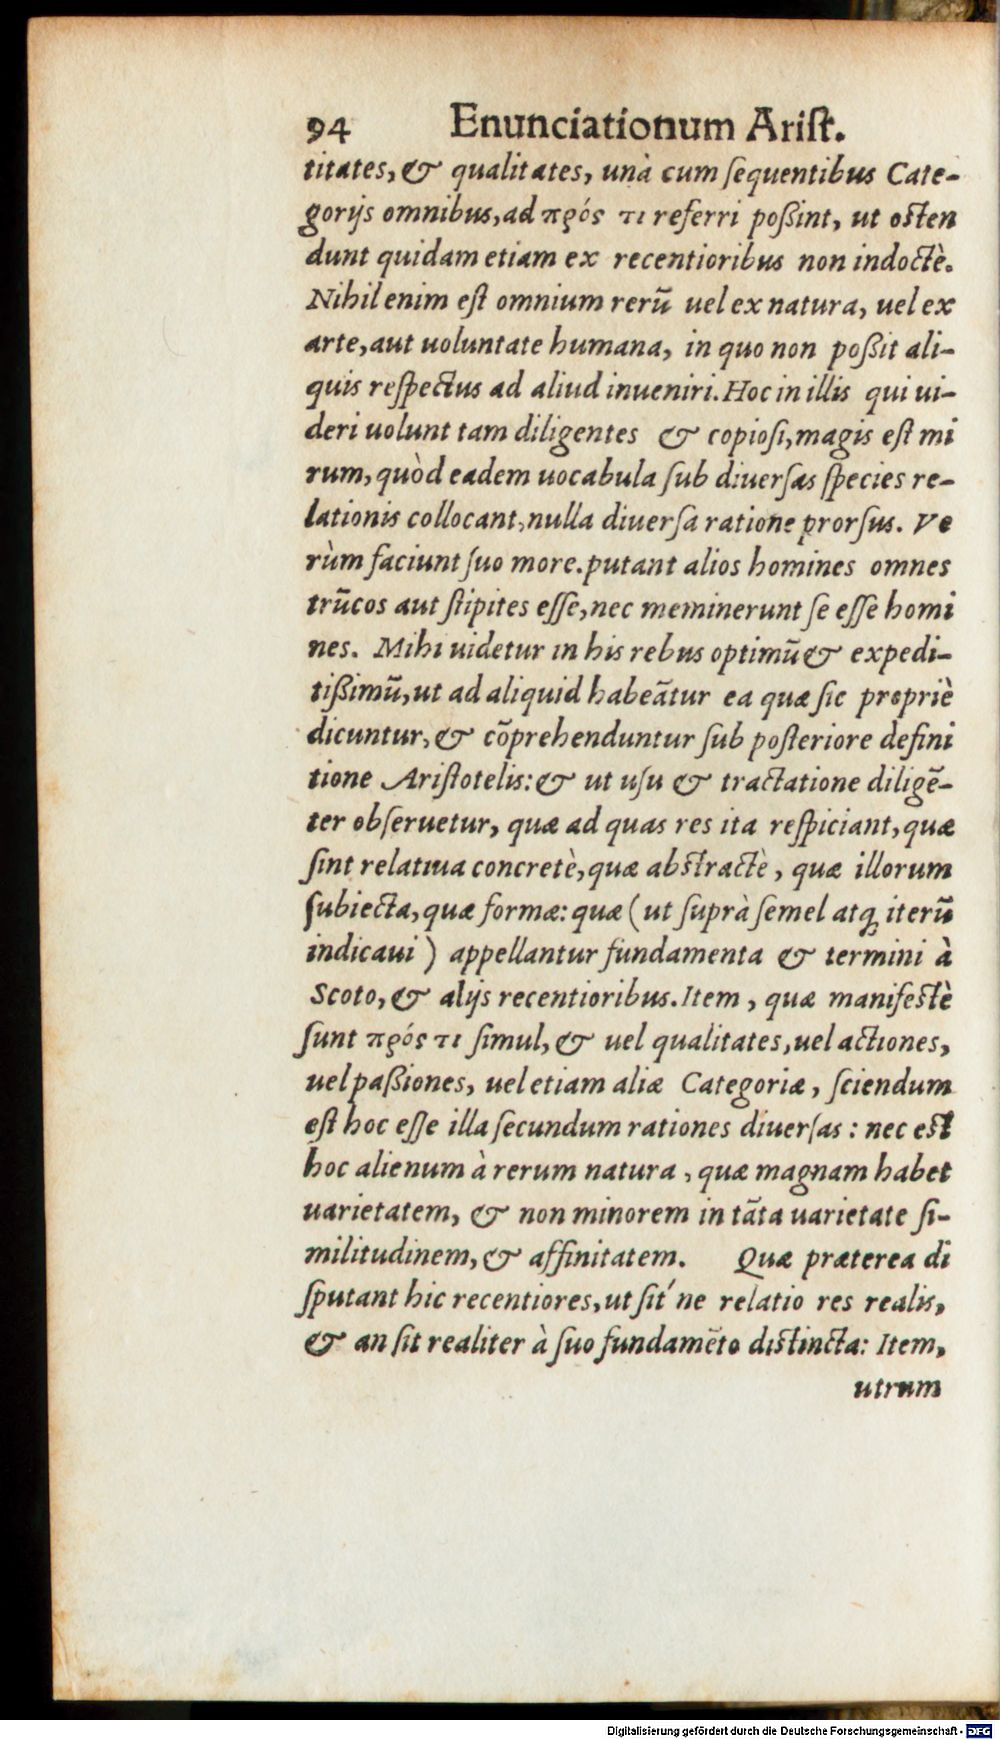 94 Enunciationum Ariſt.
titates, & qualitates, unà cum ſequentibus Cate-
gorijs omnibus, ad πρός τι referri poßint, ut oſten
dunt quidam etiam ex recentioribus non indoctè.
Nihil enim eſt omnium rerũ uel ex natura, uel ex
arte, aut uoluntate humana, in quo non poßit ali-
quis reſpectus ad aliud inueniri. Hoc in illis qui ui-
deri uolunt tam diligentes & copioſi, magis eſt mi
rum, quòd eadem uocabula ſub diuerſas ſpecies re-
lationis collocant, nulla diuerſa ratione prorſus. Ve
rùm faciunt ſuo more. putant alios homines omnes
trũcos aut ſtipites eſſe, nec meminerunt ſe eſſe homi
nes. Mihi uidetur in his rebus optimũ & expedi-
tißimũ, ut ad aliquid habeãtur ea quæ ſic propriè
dicuntur, & cõprehenduntur ſub poſteriore defini
tione Ariſtotelis: & ut uſu & tractatione diligẽ-
ter obſeruetur, quæ ad quas res ita reſpiciant, quæ
ſint relatiua concretè, quæ abſtractè, quæ illorum
ſubiecta, quæ formæ: quæ (ut ſuprà ſemel atq; iterũ
indicaui) appellantur fundamenta & termini à
Scoto, & alijs recentioribus. Item, quæ manifeſtè
ſunt πρός τι ſimul, & uel qualitates, uel actiones,
uel paßiones, uel etiam aliæ Categoriæ, ſciendum
eſt hoc eſſe illa ſecundum rationes diuerſas: nec eſt
hoc alienum à rerum natura, quæ magnam habet
uarietatem, & non minorem in tãta uarietate ſi-
militudinem, & affinitatem. Quæ præterea di
ſputant hic recentiores, ut ſit´ne relatio res realis,
& an ſit realiter à ſuo fundamẽto diſtincta: Item,
utrum
Digitalisierung gefördert durch die Deutsche Forschungsgemeinschaft - DFG